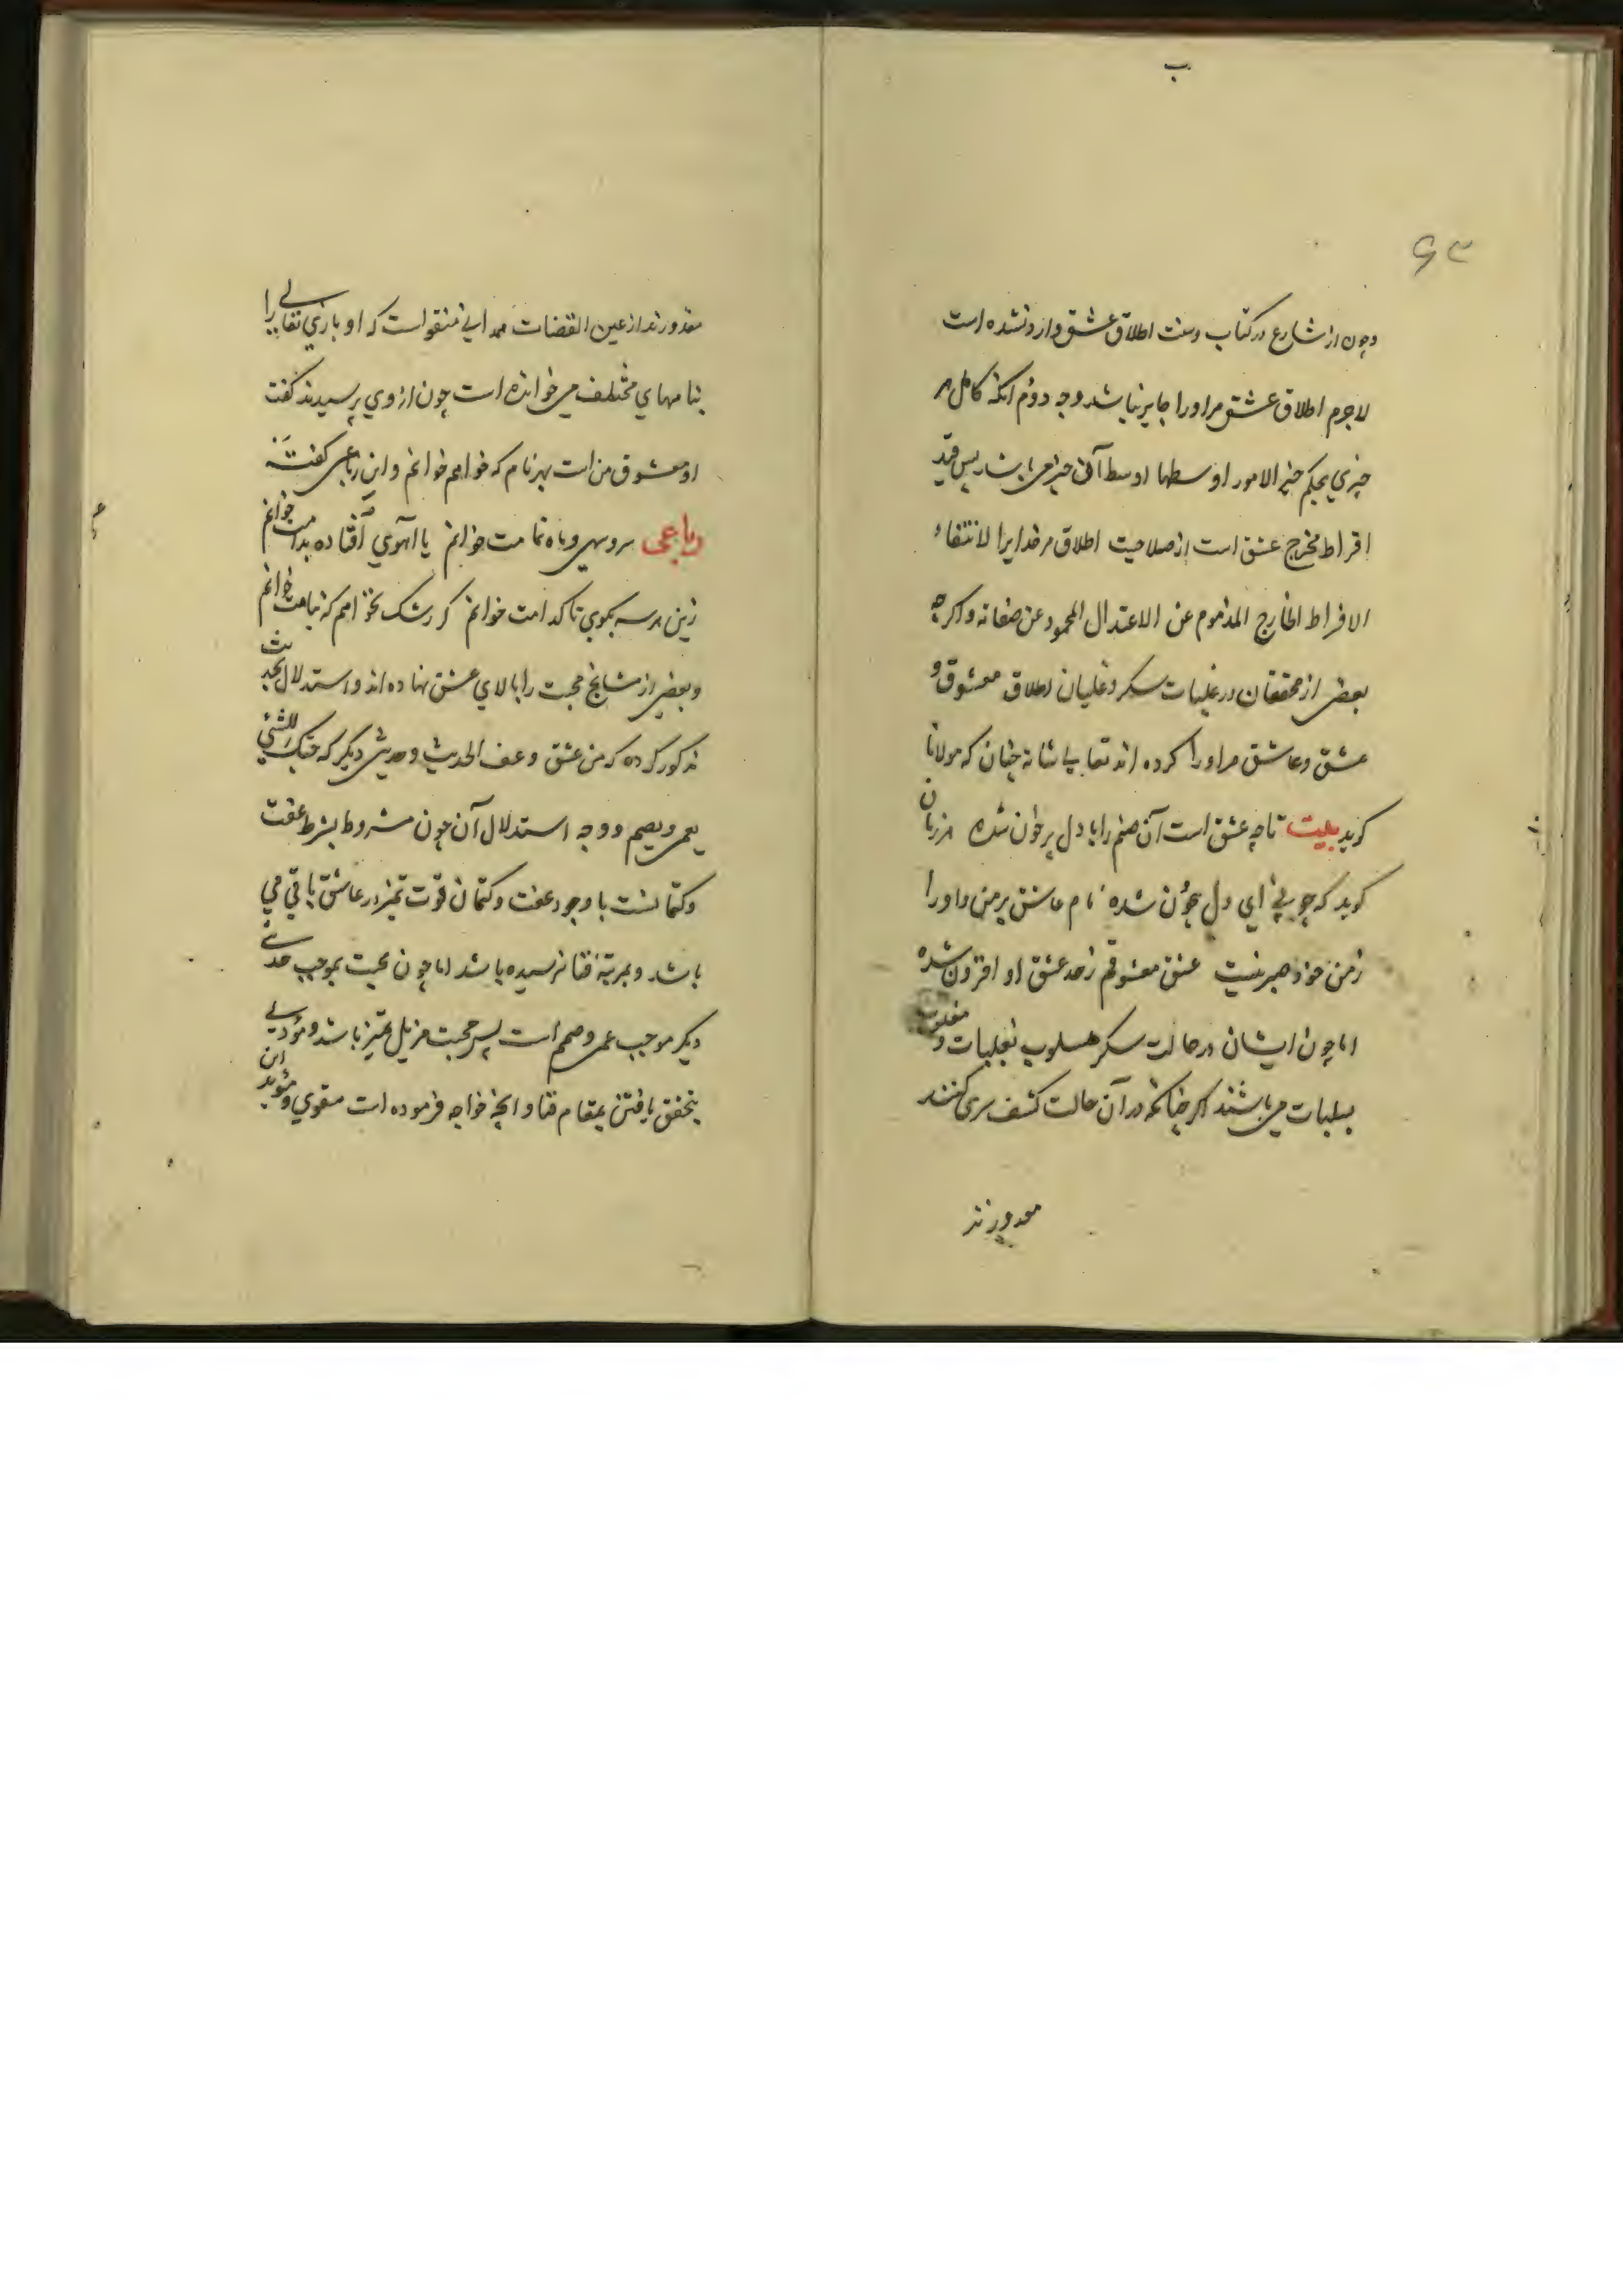 ب
۶۳
وچون از شارع در کتاب و سنت اطلاق عشق وارد نشده است
لاجرم اطلاق عشق مر اورا جایز نباشد وجه دوّم آنکه کامل هر
چیزی بحکم خیر الامور اوسطها اوسط آن چیز می باشد پس قید
افراط مخرج عشق است از صلاحیت اطلاق مر خدایرا لانتفاء
الافراط الخارج المذموم عن الاعتدال المحمود عن صفاته واکرچه
بعضی از محققان در غلبات سکر و غلیان اطلاق معشوق و
عشق و عاشق مر اورا کرده اند تعالی شانه چنان که مولانا
کوید بیت تا چه عشق است آن صنم را با دل پر خون شده هر زمان
کوید که چونی ای دل بیچون شده نام عاشق بر من و اورا
ز من خود صبر نیست عشق معشوقم ز حد عشق او افزون شده
اما چون ایشان در حالت سکر مسلوب بغلبات و مغلوب
بسلبات می باشند اکر چنانکه در آن حالت کشف سری کنند
معدورند
معذورند از عین القضات همدانی منقول است که او باری تعالی را
بنامهای مختلف می خوانده است چون از وی پرسیدند کفت
او معشوق من است بهر نام که خواهم خوانم و این رباعی کفته
رباعی سرو سهی و ماه تمامت خوانم یا آهوی افتاده بدامت خوانم
زین هر سه بکوی تا کدامت خوانم کز رشک نخواهم که بنامت خوانم
وبعضی از مشایخ محبت را بالای عشق نهاده اند و استدلال بحدیث
مذکور کرده که من عشق و عف الحدیث و حدیثی دیکر که حبک الشئ
یعمی ویصم و وجه استدلال آن چون مشروط بشرط عفت
وکتمانست با وجود عفت وکتمان قوت تمیز در عاشق باقی می
باشد و بمرتبهٔ فنا نرسیده باشد اما چون محبت بموجب حدیث
دیکر موجب عمی و صمم است پس محبت مزیل تمیز باشد و مؤدی
بتحقق یافتن بمقام فنا و آنچه خواجه فرموده است مقوی و مؤید این